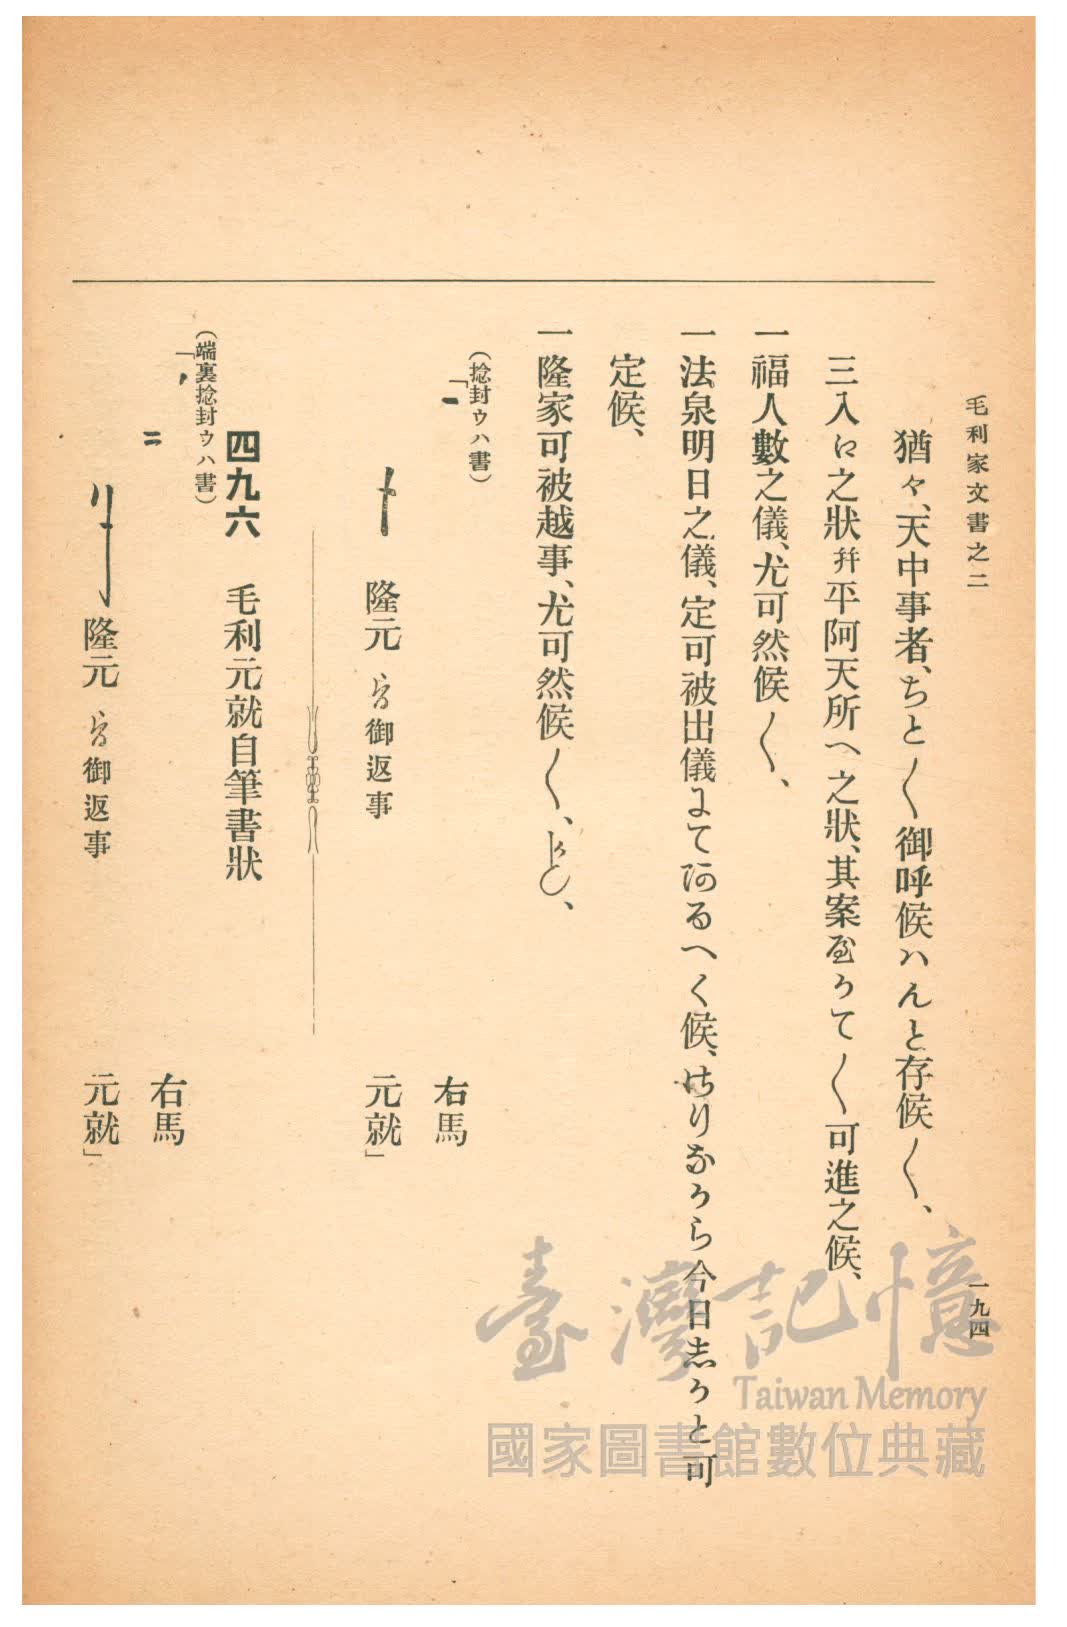 毛利家文書之二
一九四
猶々、天中事者、ちと〳〵御呼候ハんと存候〳〵、
三入江之狀幷平阿天所へ之狀、其案遣って〳〵可進之候、
一福人數之儀、尤可然候〳〵、
一法泉明日之儀、定可被出儀にて可あるへく候、はりなから今日志かと可
定候、
一隆家可被越事、尤可然候〳〵、かしく、
(捻封ウハ書)
「
右馬
隆元 御返事
元就」
四九六 毛利元就自筆書狀
(端裏捻封ウハ書)
「
右馬
隆元 御返事
元就」
臺灣記憶
Taiwan Memory
國家圖書館數位典藏